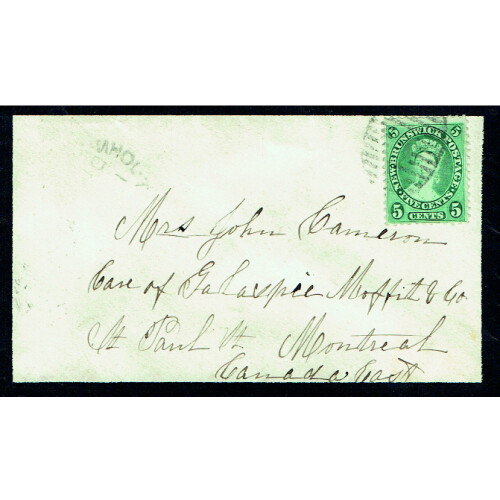 5 5
NEW BRUNSWICK POSTAGE
FIVE CENTS
5 CENTS 5
Mrs John Cameron
Care of Galaspie Moffit & Co
St Paul St Montreal
Canada East